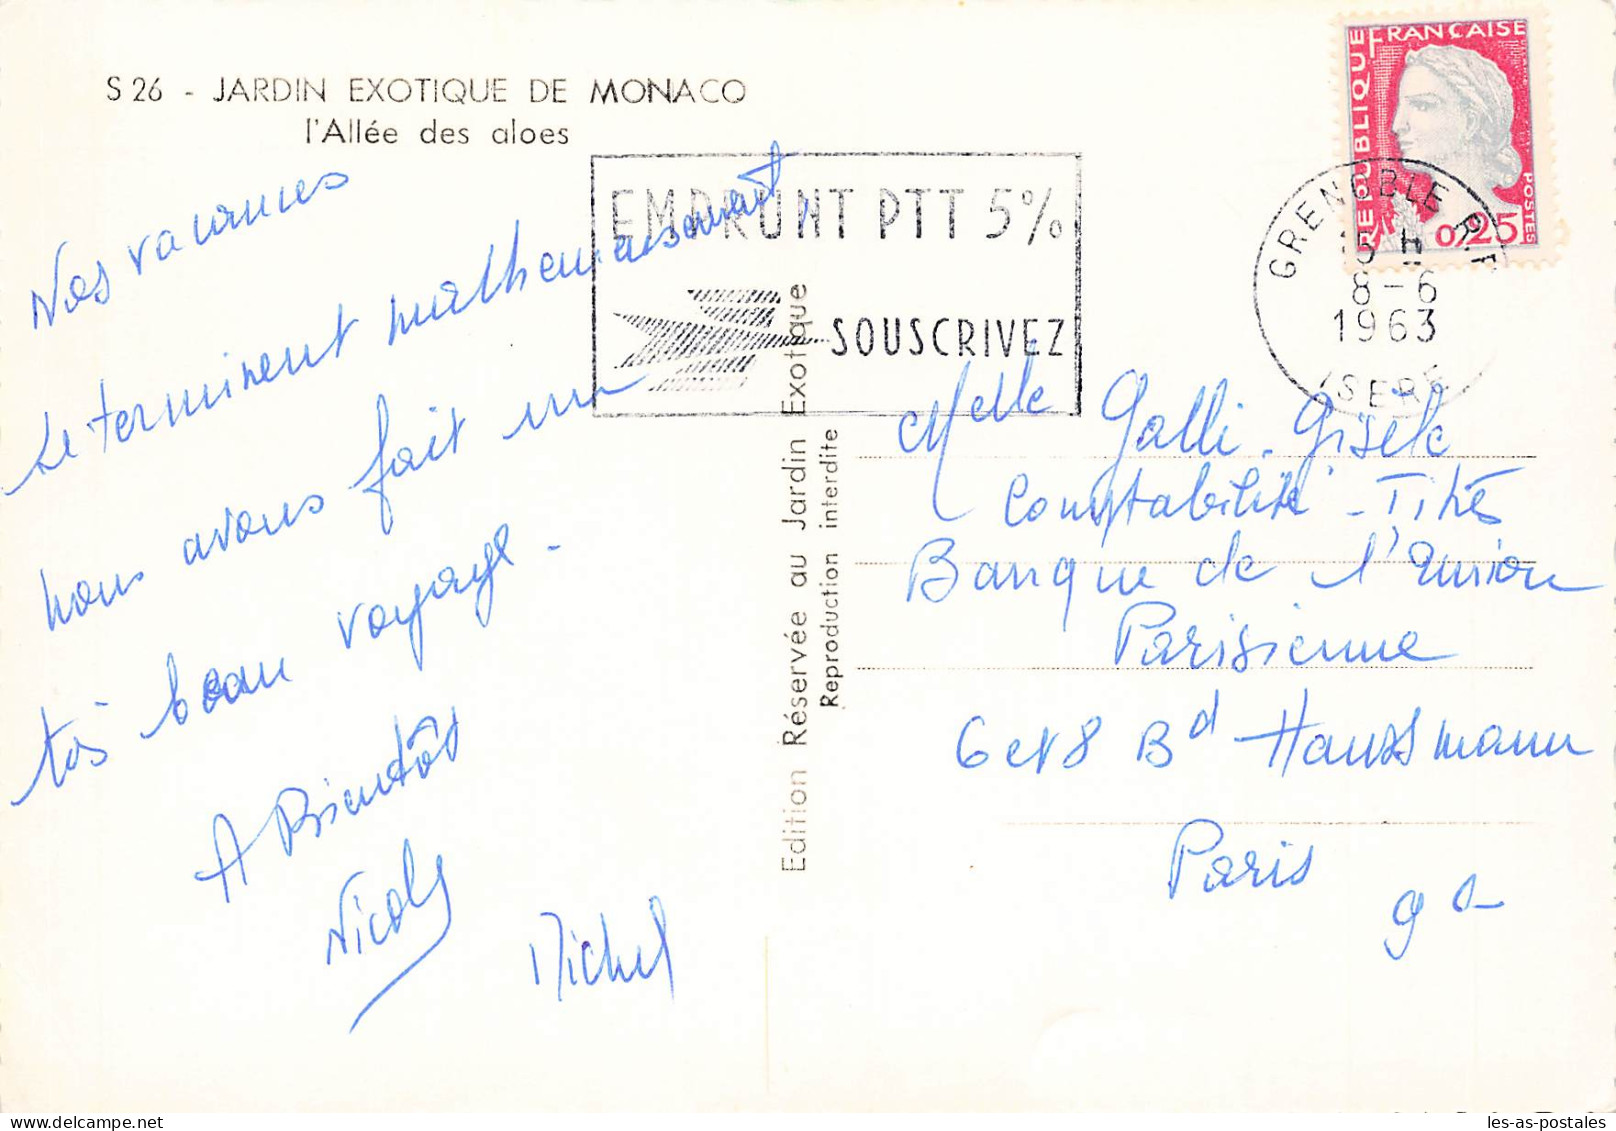 S 26 - JARDIN EXOTIQUE DE MONACO
l'Allée des aloes
EMPRUNT PTT 5%
SOUSCRIVEZ
REPUBLIQUE FRANÇAISE
POSTES
0,25
GRENOBLE R.P.
15 H
8-6
1963
ISERE
Nos vacances
se terminent malheureusement,
nous avons fait un
très beau voyage.
A Bientôt
Nicole
Michel
Edition Réservée au Jardin Exotique
Reproduction interdite
Melle Galli Gisèle
Comptabilité - Titres
Banque de l'Union
Parisienne
6 et 8 Bd Haussmann
Paris
9
les-as-postales